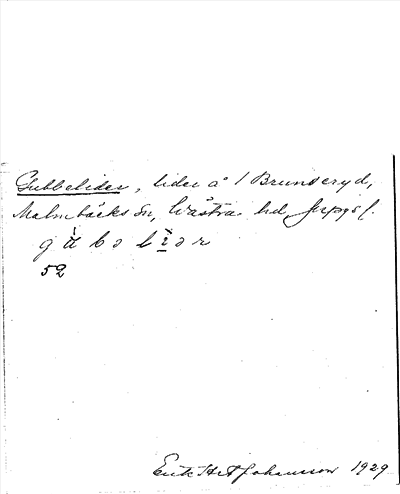 Gubbeliden, liden å 1 Brunseryd,
Malmbäcks sn, Västra hd, Jkpgs l.
52
Erik H A Johansson 1929